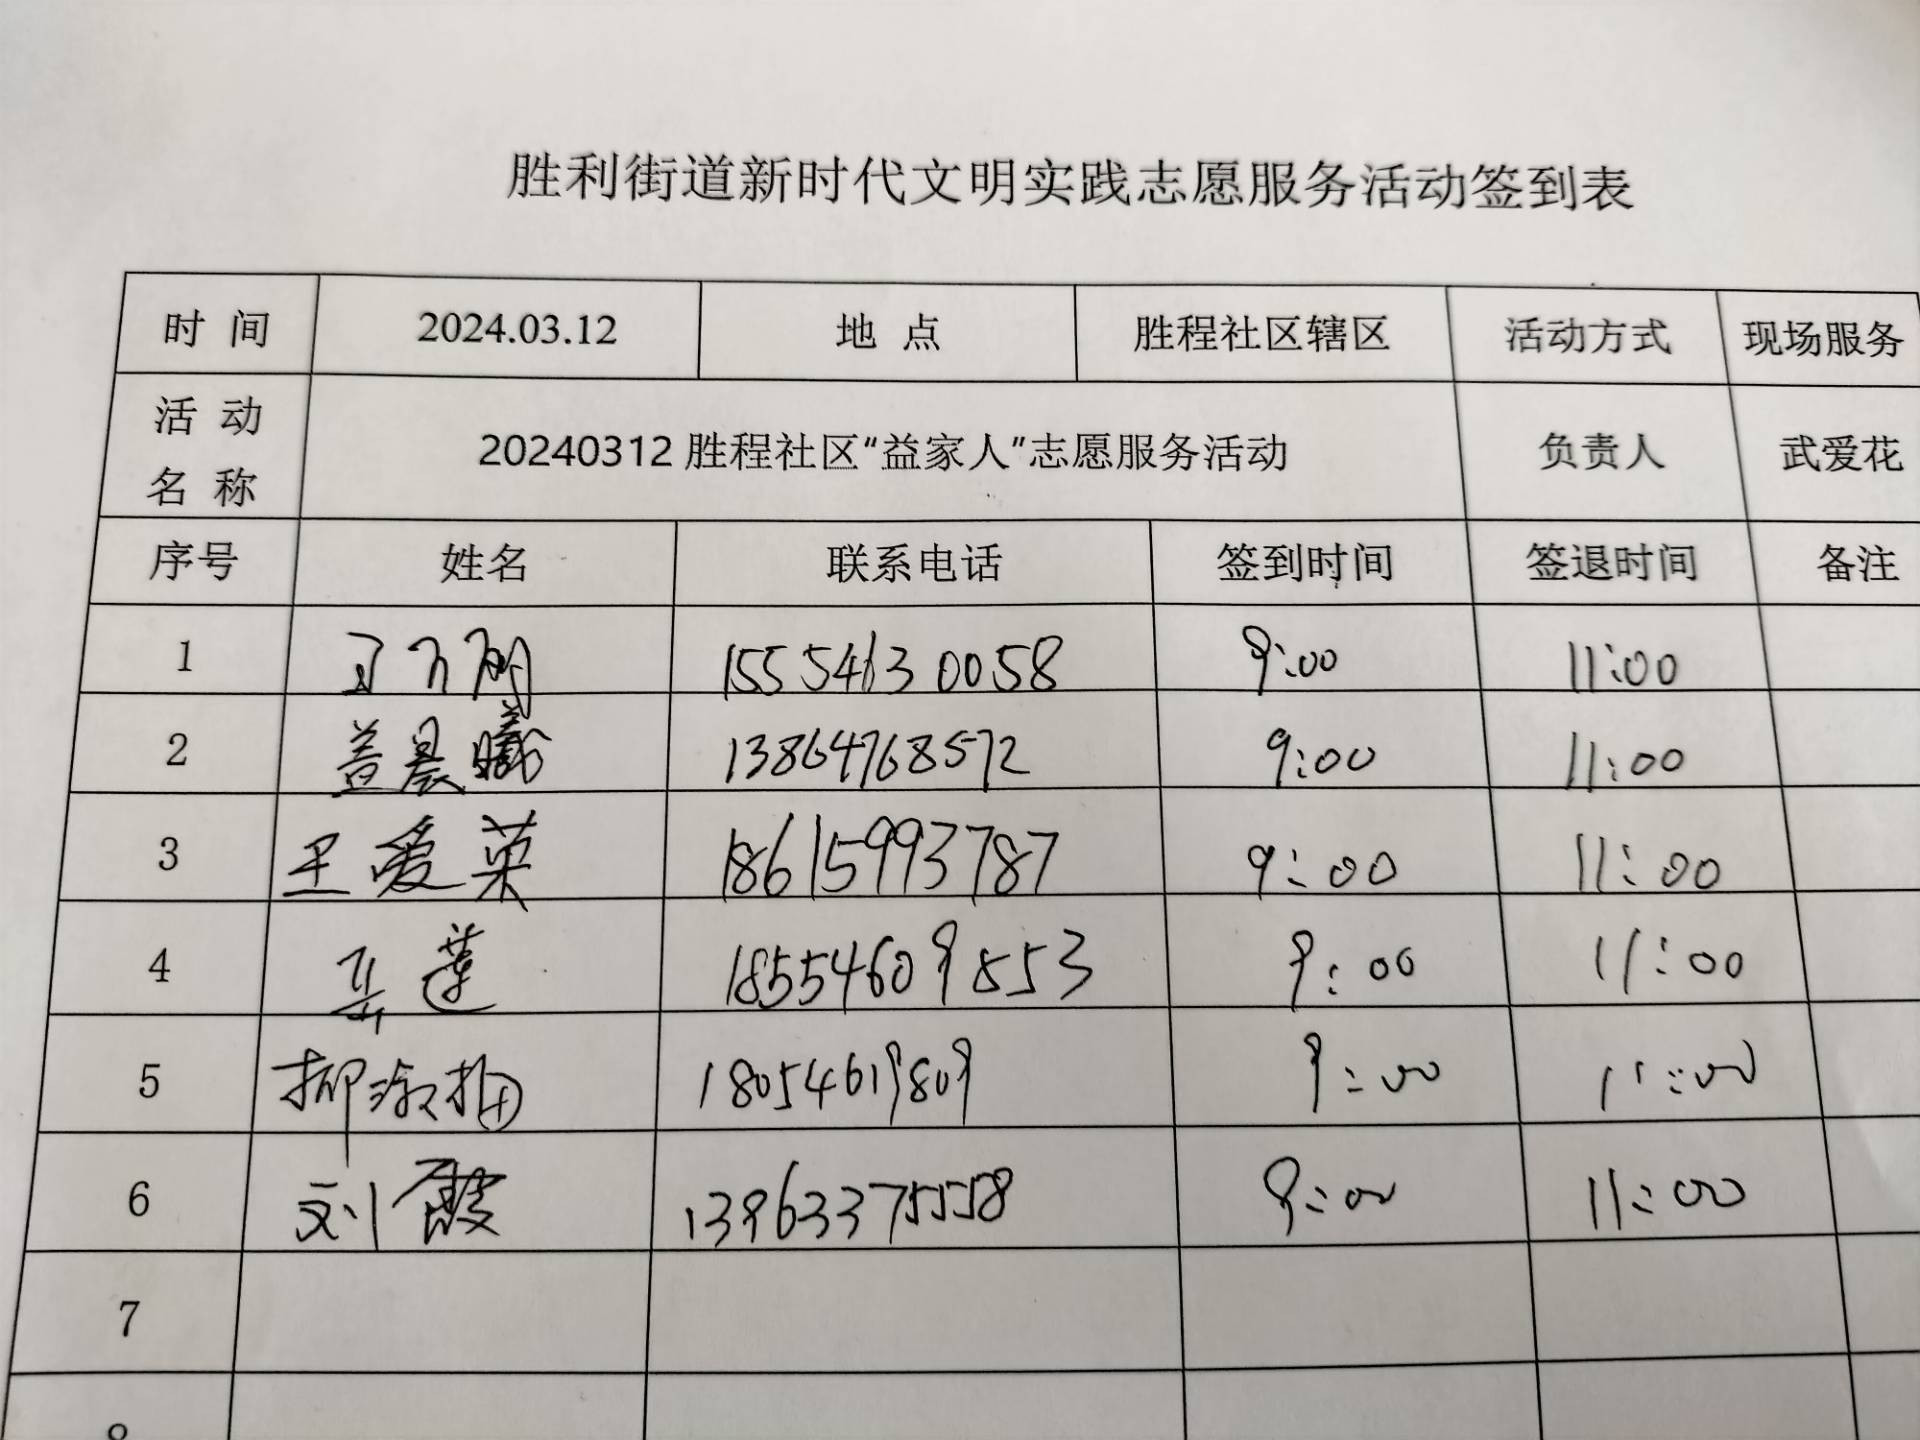 胜利街道新时代文明实践志愿服务活动签到表
时 间 2024.03.12 地 点 胜程社区辖区 活动方式 现场服务
活 动 名 称 20240312 胜程社区“益家人”志愿服务活动 负责人 武爱花
序号 姓名 联系电话 签到时间 签退时间 备注
1 15554630058 9:00 11:00
2 盖晨曦 13864768572 9:00 11:00
3 王爱英 18615993787 9:00 11:00
4 莲 18554609553 9:00 11:00
5 柳 18054619809 9:00 11:00
6 刘霞 13963375558 9:00 11:00
7
8